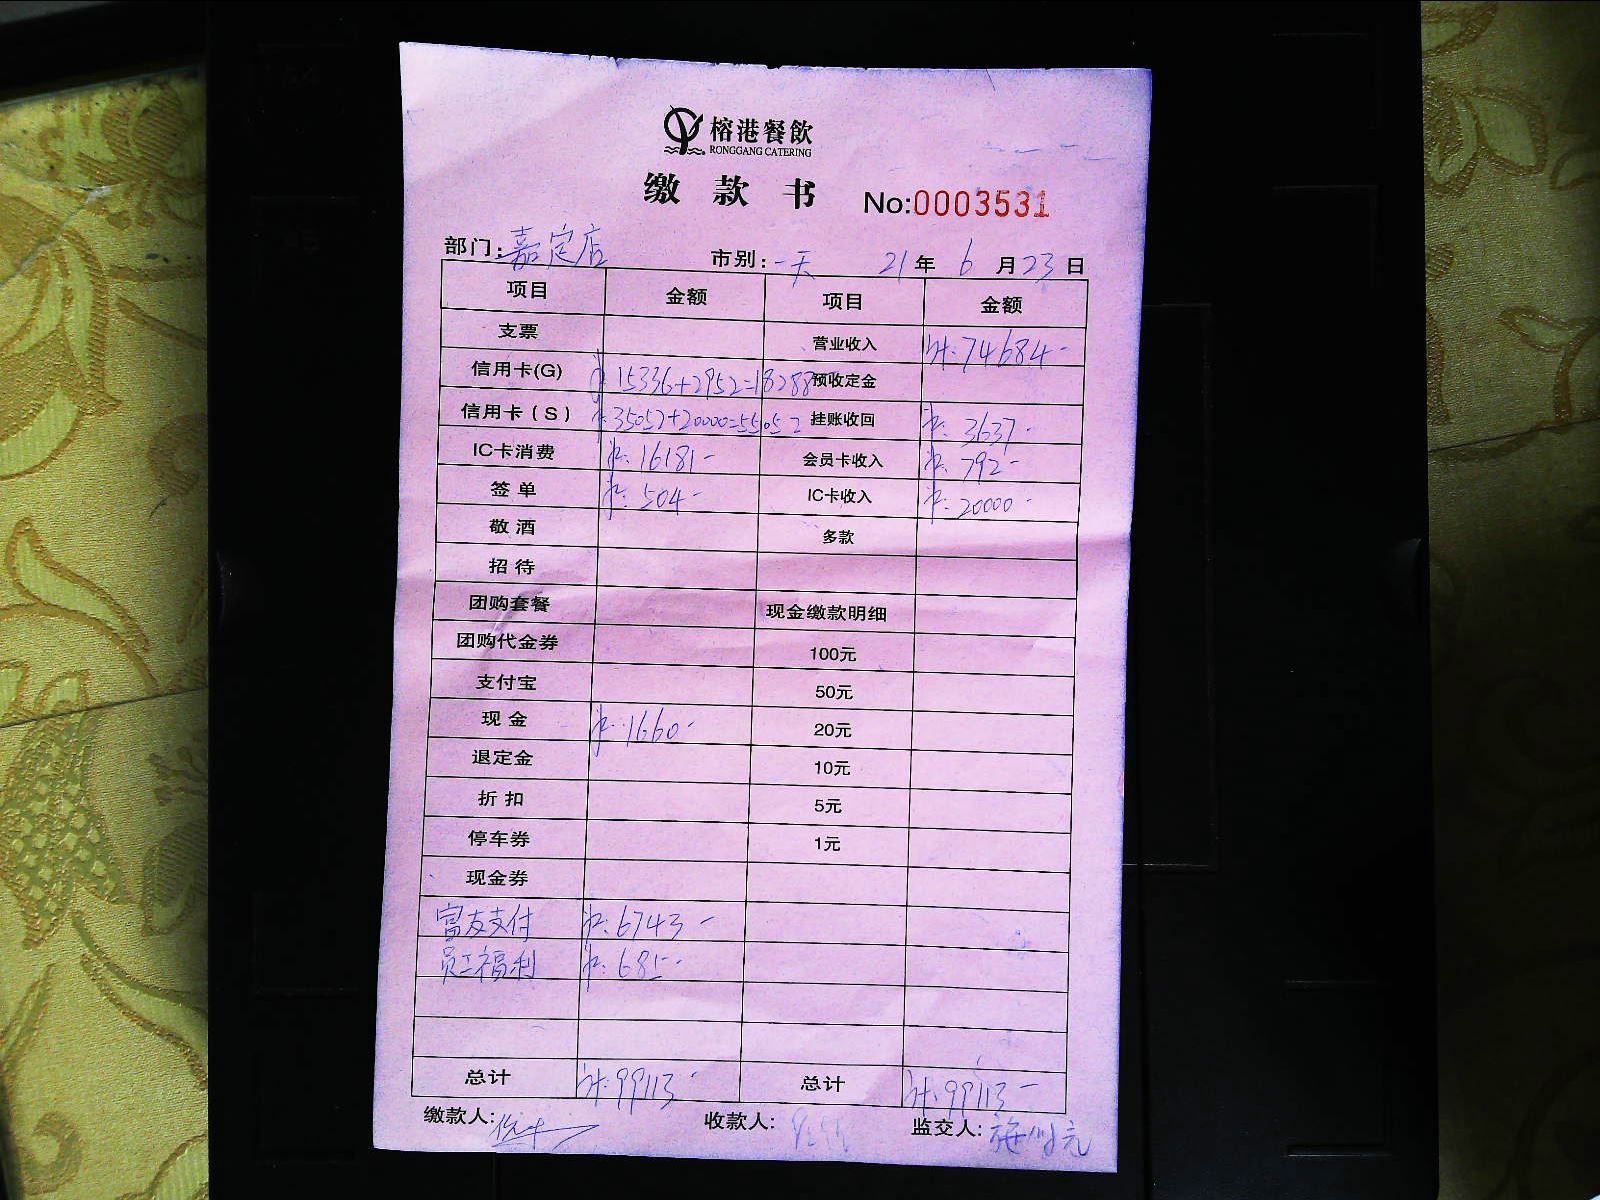 榕港餐飲
RONGGANG CATERING
缴款书 No:0003531
部门:嘉定店 市别:一天 21年6月23日
项目 金额 项目 金额
支票 营业收入 计:74684-
信用卡(G) 15336+2952=18288 预收定金
信用卡(S) 35052+20000=55052 挂账收回 3637-
IC卡消费 16181- 会员卡收入 792-
签单 504- IC卡收入 20000-
敬酒 多款
招待
团购套餐 现金缴款明细
团购代金券 100元
支付宝 50元
现金 1660- 20元
退定金 10元
折扣 5元
停车券 1元
现金券
富友支付 6743-
员工福利 685-
总计 计:99113- 总计 计:99113-
缴款人: 收款人: 监交人: